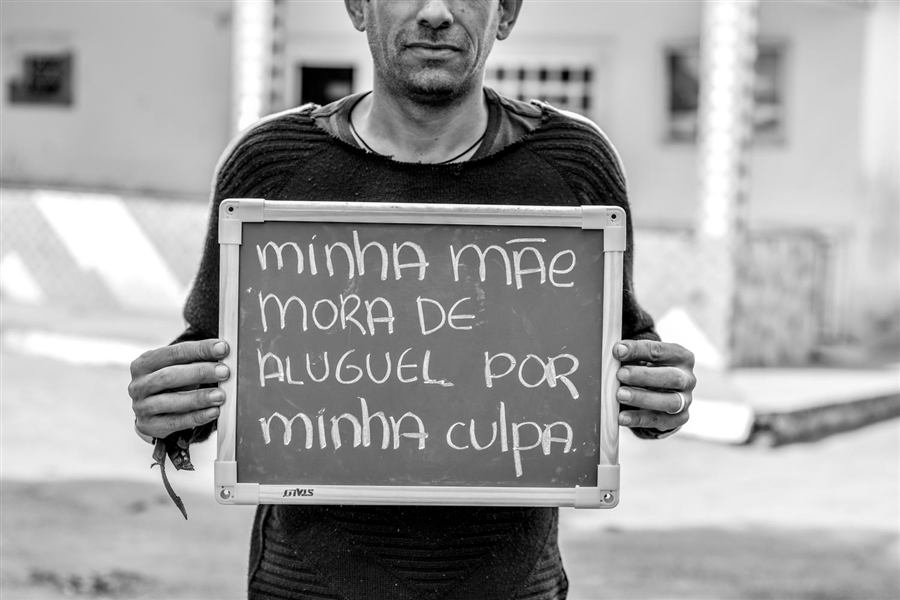 minha mãe
MORA DE
ALUGUEL POR
minha culpa.
STALO